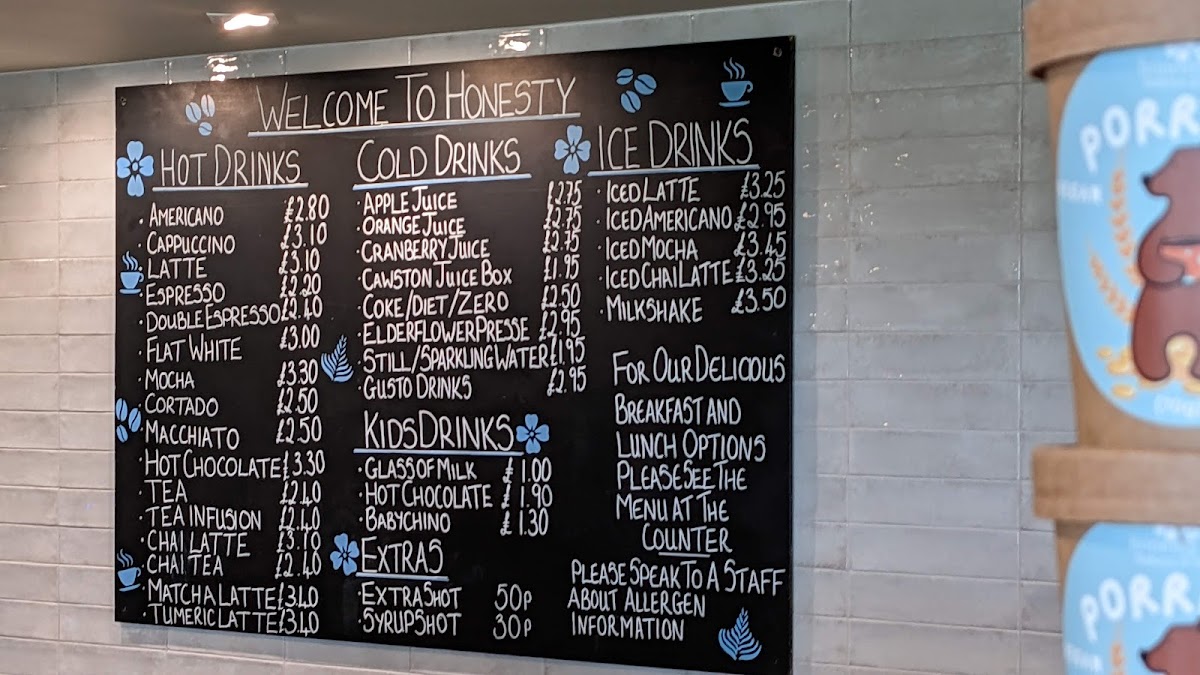 WELCOME TO HONESTY
HOT DRINKS
· AMERICANO £2.80
· CAPPUCCINO £3.10
· LATTE £3.10
· ESPRESSO £2.20
· DOUBLE ESPRESSO £2.40
· FLAT WHITE £3.00
· MOCHA £3.30
· CORTADO £2.50
· MACCHIATO £2.50
· HOT CHOCOLATE £3.30
· TEA £2.40
· TEA INFUSION £2.40
· CHAI LATTE £3.10
· CHAI TEA £2.40
· MATCHA LATTE £3.40
· TUMERIC LATTE £3.40
COLD DRINKS
· APPLE JUICE £2.75
· ORANGE JUICE £2.75
· CRANBERRY JUICE £2.75
· CAWSTON JUICE BOX £1.95
· COKE/DIET/ZERO £2.50
· ELDERFLOWER PRESSE £2.95
· STILL/SPARKLING WATER £1.95
· GUSTO DRINKS £2.95
KIDS DRINKS
· GLASS OF MILK £1.00
· HOT CHOCOLATE £1.90
· BABYCHINO £1.30
EXTRAS
· EXTRA SHOT 50P
· SYRUP SHOT 30P
ICE DRINKS
· ICED LATTE £3.25
· ICED AMERICANO £2.95
· ICED MOCHA £3.45
· ICED CHAI LATTE £3.25
· MILKSHAKE £3.50
FOR OUR DELICIOUS
BREAKFAST AND
LUNCH OPTIONS
PLEASE SEE THE
MENU AT THE
COUNTER
PLEASE SPEAK TO A STAFF
ABOUT ALLERGEN
INFORMATION
PORR
PORR